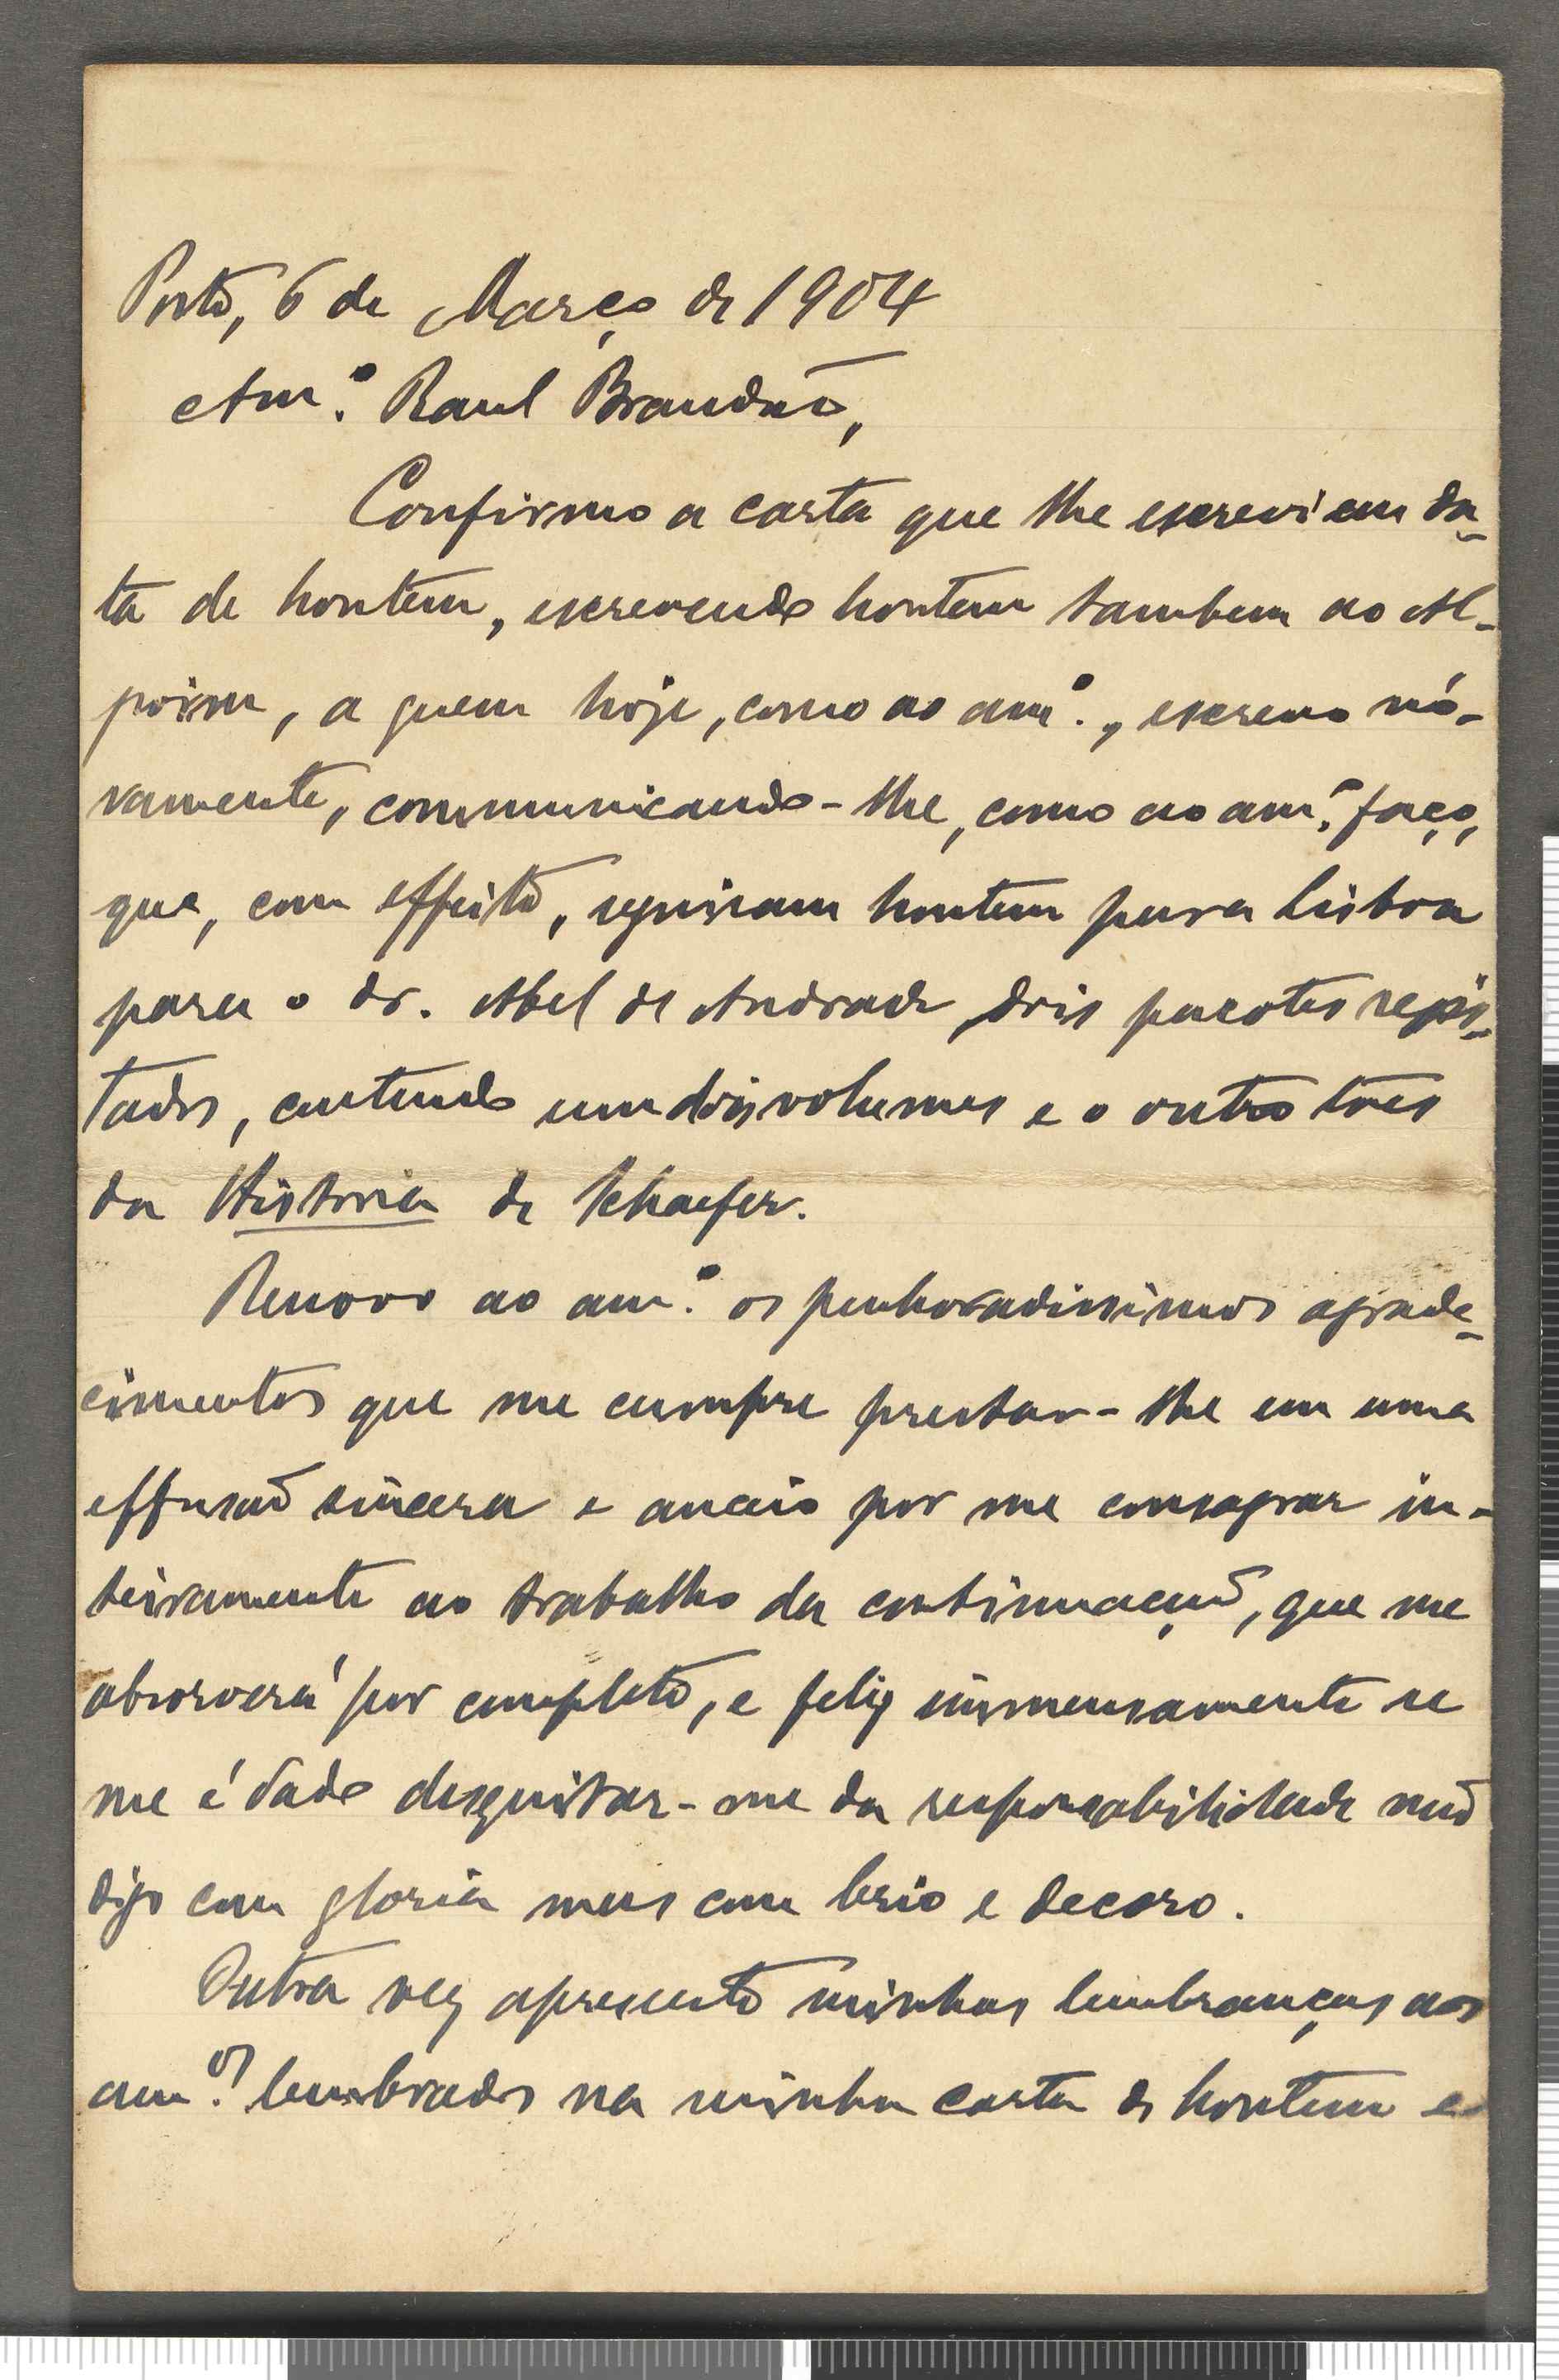 Porto, 6 de Março de 1904
Am.º Raul Brandão,
Confirmo a carta que lhe escrevi em da-
ta de hontem, escrevendo hontem tambem ao Al-
poim, a quem hoje, como ao am.º, escrevo nó-
vamente, communicando-lhe, como ao am.º faço,
que, com effeito, seguiram hontem para Lisboa
para o dr. Abel de Andrade dois pacotes regis-
tados, contendo um dois volumes e o outro tres
da Historia de Schaefer.
Renovo ao am.º os penhoradissimos agrade-
cimentos que me cumpre prestar-lhe em uma
effusão sincera e anceio por me consagrar in-
teiramente ao trabalho da continuação, que me
absorverá por completo, e feliz immensamente se
me é dado desquitar-me da responsabilidade não
digo com gloria mas com brio e decoro.
Outra vez apresento minhas lembranças aos
am.os lembrados na minha carta de hontem e